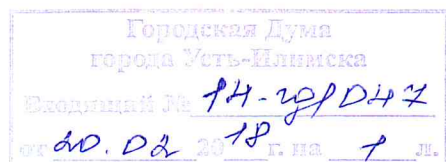 Городская Дума
города Усть-Илимска
Входящий № 14-гд/047
от 20.02 2018 г. на 1 л.